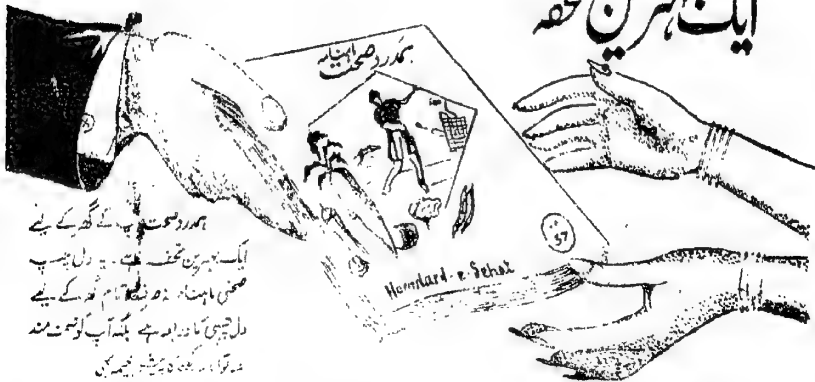 ایک بہترین تحفہ
ماہنامہ
ہمدرد صحت
57
Hamdard-e-Sehat
ہمدرد صحت آپ کے گھر کے لئے
ایک بہترین تحفہ ہے۔ یہ دل چسپ
صحتی ماہنامہ نہ صرف تمام گھر کے لئے
دل چسپی کا ذریعہ ہے بلکہ آپ کو صحت مند